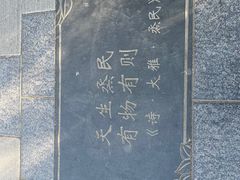 天生烝民
有物有则
《诗·大雅·烝民》